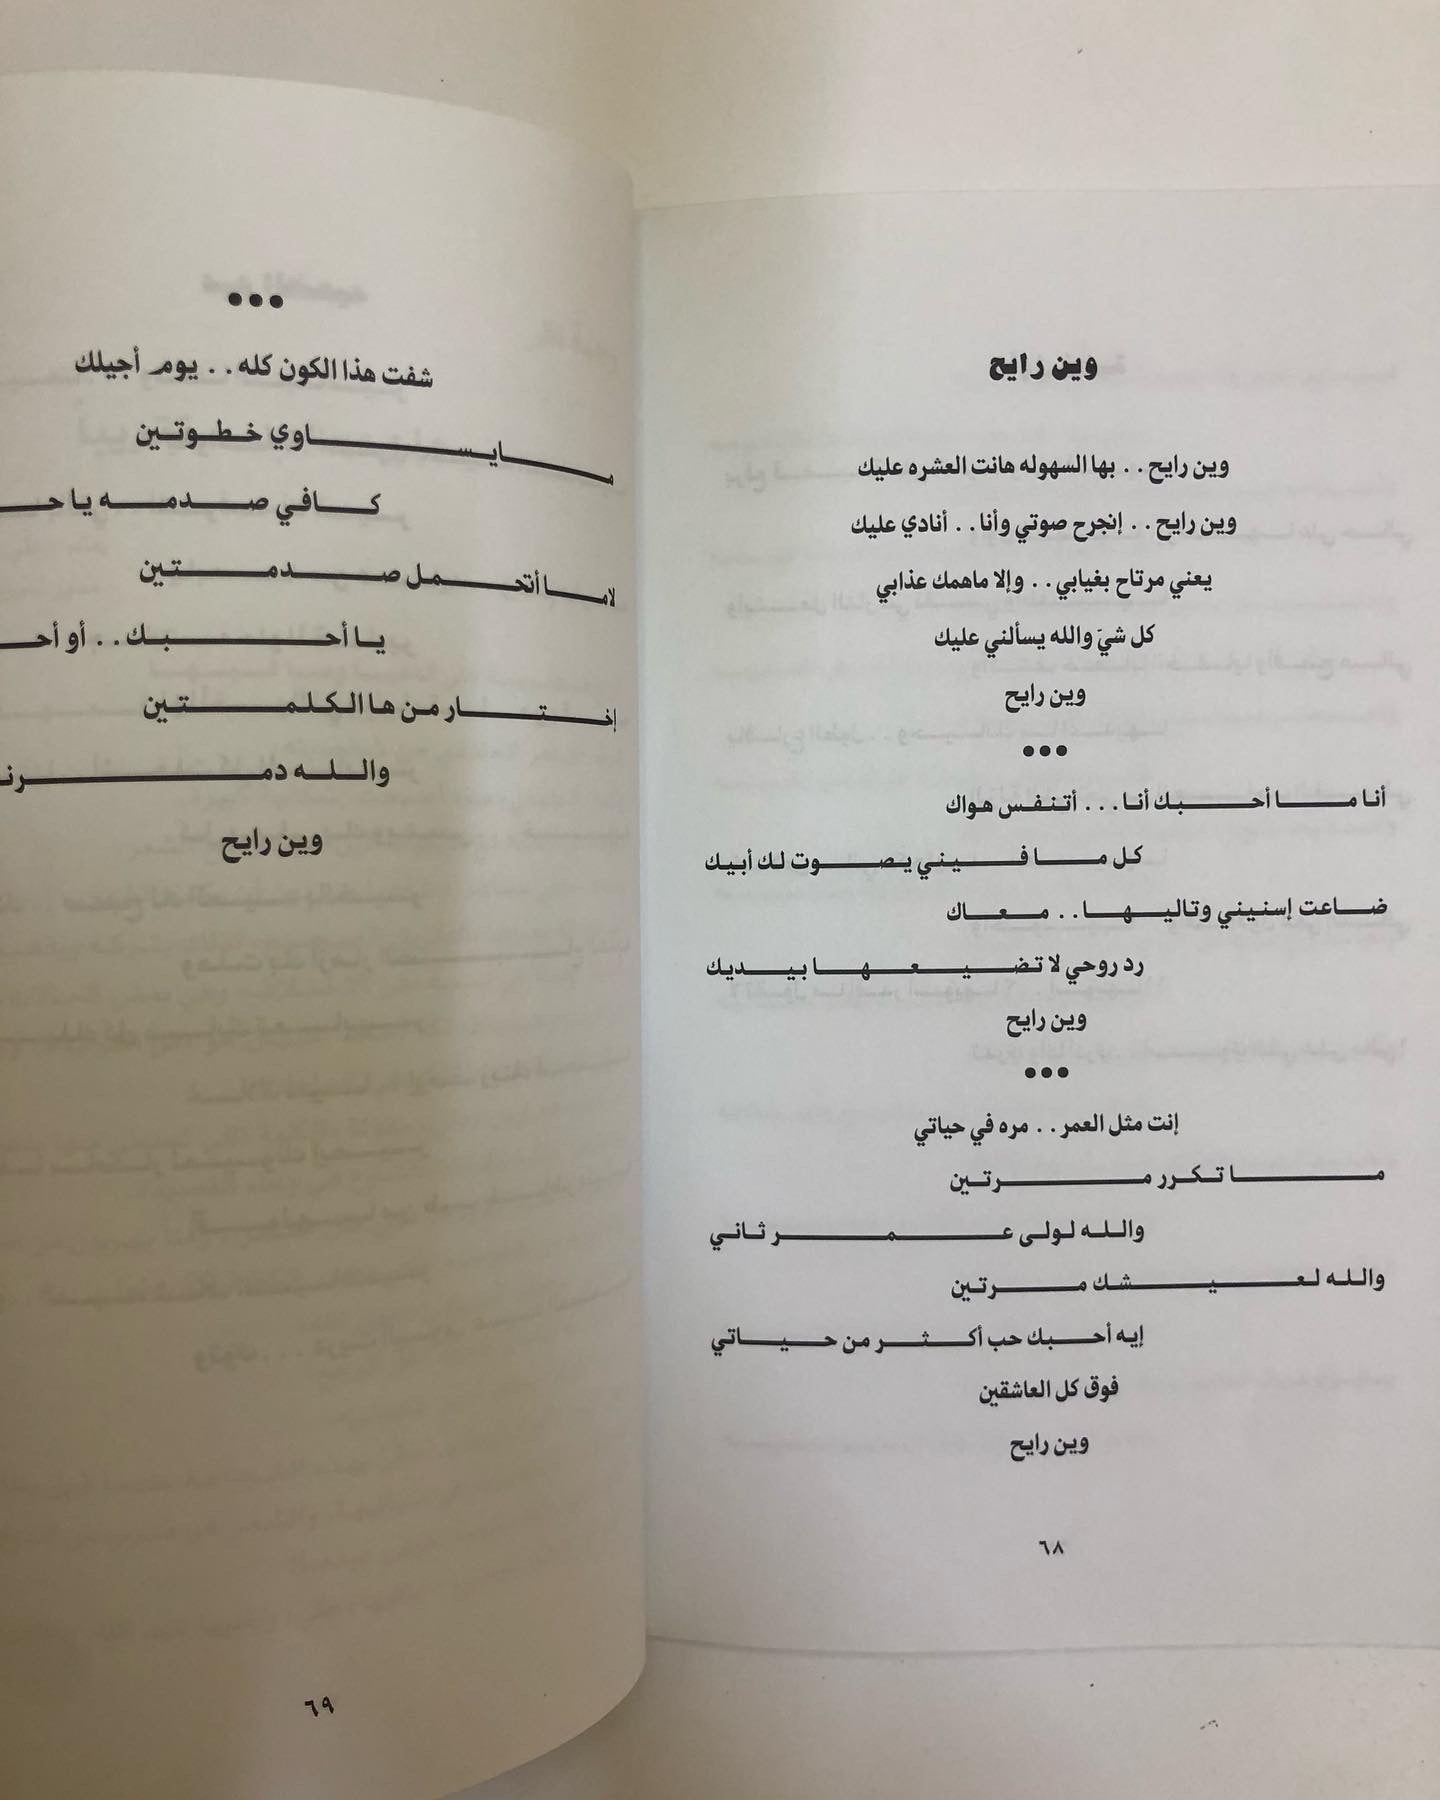 وين رايح
وين رايح . . بها السهوله هانت العشره عليك
وين رايح . . إنجرح صوتي وأنا . . أنادي عليك
يعني مرتاح بغيابي . . وإلا ماهمك عذابي
كل شيَ والله يسألني عليك
وين رايح
•••
أنا ما أحبك أنا . . . أتنفس هواك
كل ما فيني يصوت لك أبيك
ضاعت إسنيني وتاليها . . معاك
رد روحي لا تضيعها بيديك
وين رايح
•••
إنت مثل العمر . . مره في حياتي
ما تكرر مرتين
والله لولى عمر ثاني
والله لعيشك مرتين
إيه أحبك حب أكثر من حياتي
فوق كل العاشقين
وين رايح
٦٨
•••
شفت هذا الكون كله . . يوم أجيلك
مايساوي خطوتين
كافي صدمه يا
لاما أتحمل صدمتين
يا أحبك . . أو
إختار من ها الكلمتين
والله
وين رايح
٦٩